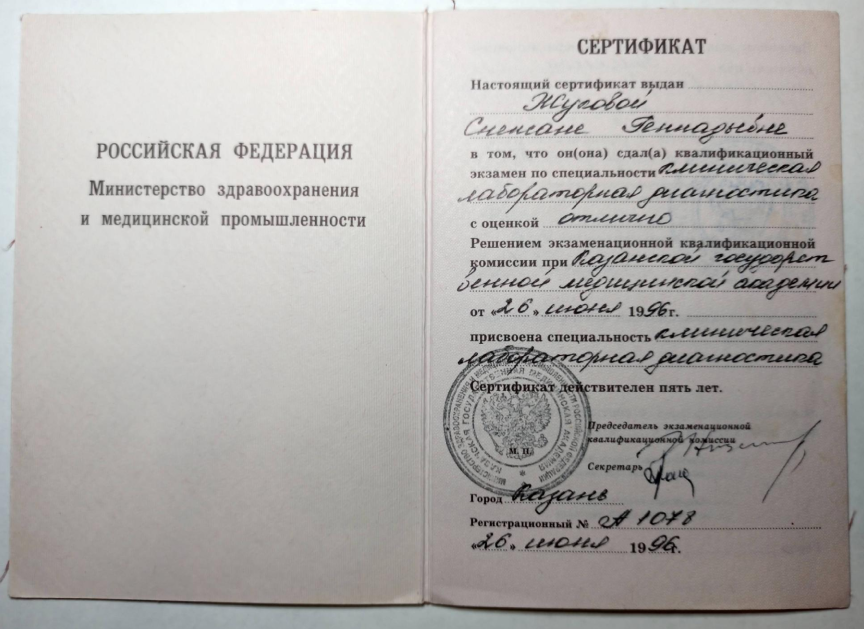 РОССИЙСКАЯ ФЕДЕРАЦИЯ
Министерство здравоохранения
и медицинской промышленности
СЕРТИФИКАТ
Настоящий сертификат выдан
Жуговой
Снежане Геннадьевне
в том, что он(она) сдал(а) квалификационный
экзамен по специальности клиническая
лабораторная диагностика
с оценкой отлично
Решением экзаменационной квалификационной
комиссии при Казанской государст
венной медицинской академии
от «26» июня 1996г.
присвоена специальность клиническая
лабораторная диагностика
Сертификат действителен пять лет.
Председатель экзаменационной
квалификационной комиссии
М. П.
Секретарь
Город Казань
Регистрационный № А 1078
«26» июня 1996г.